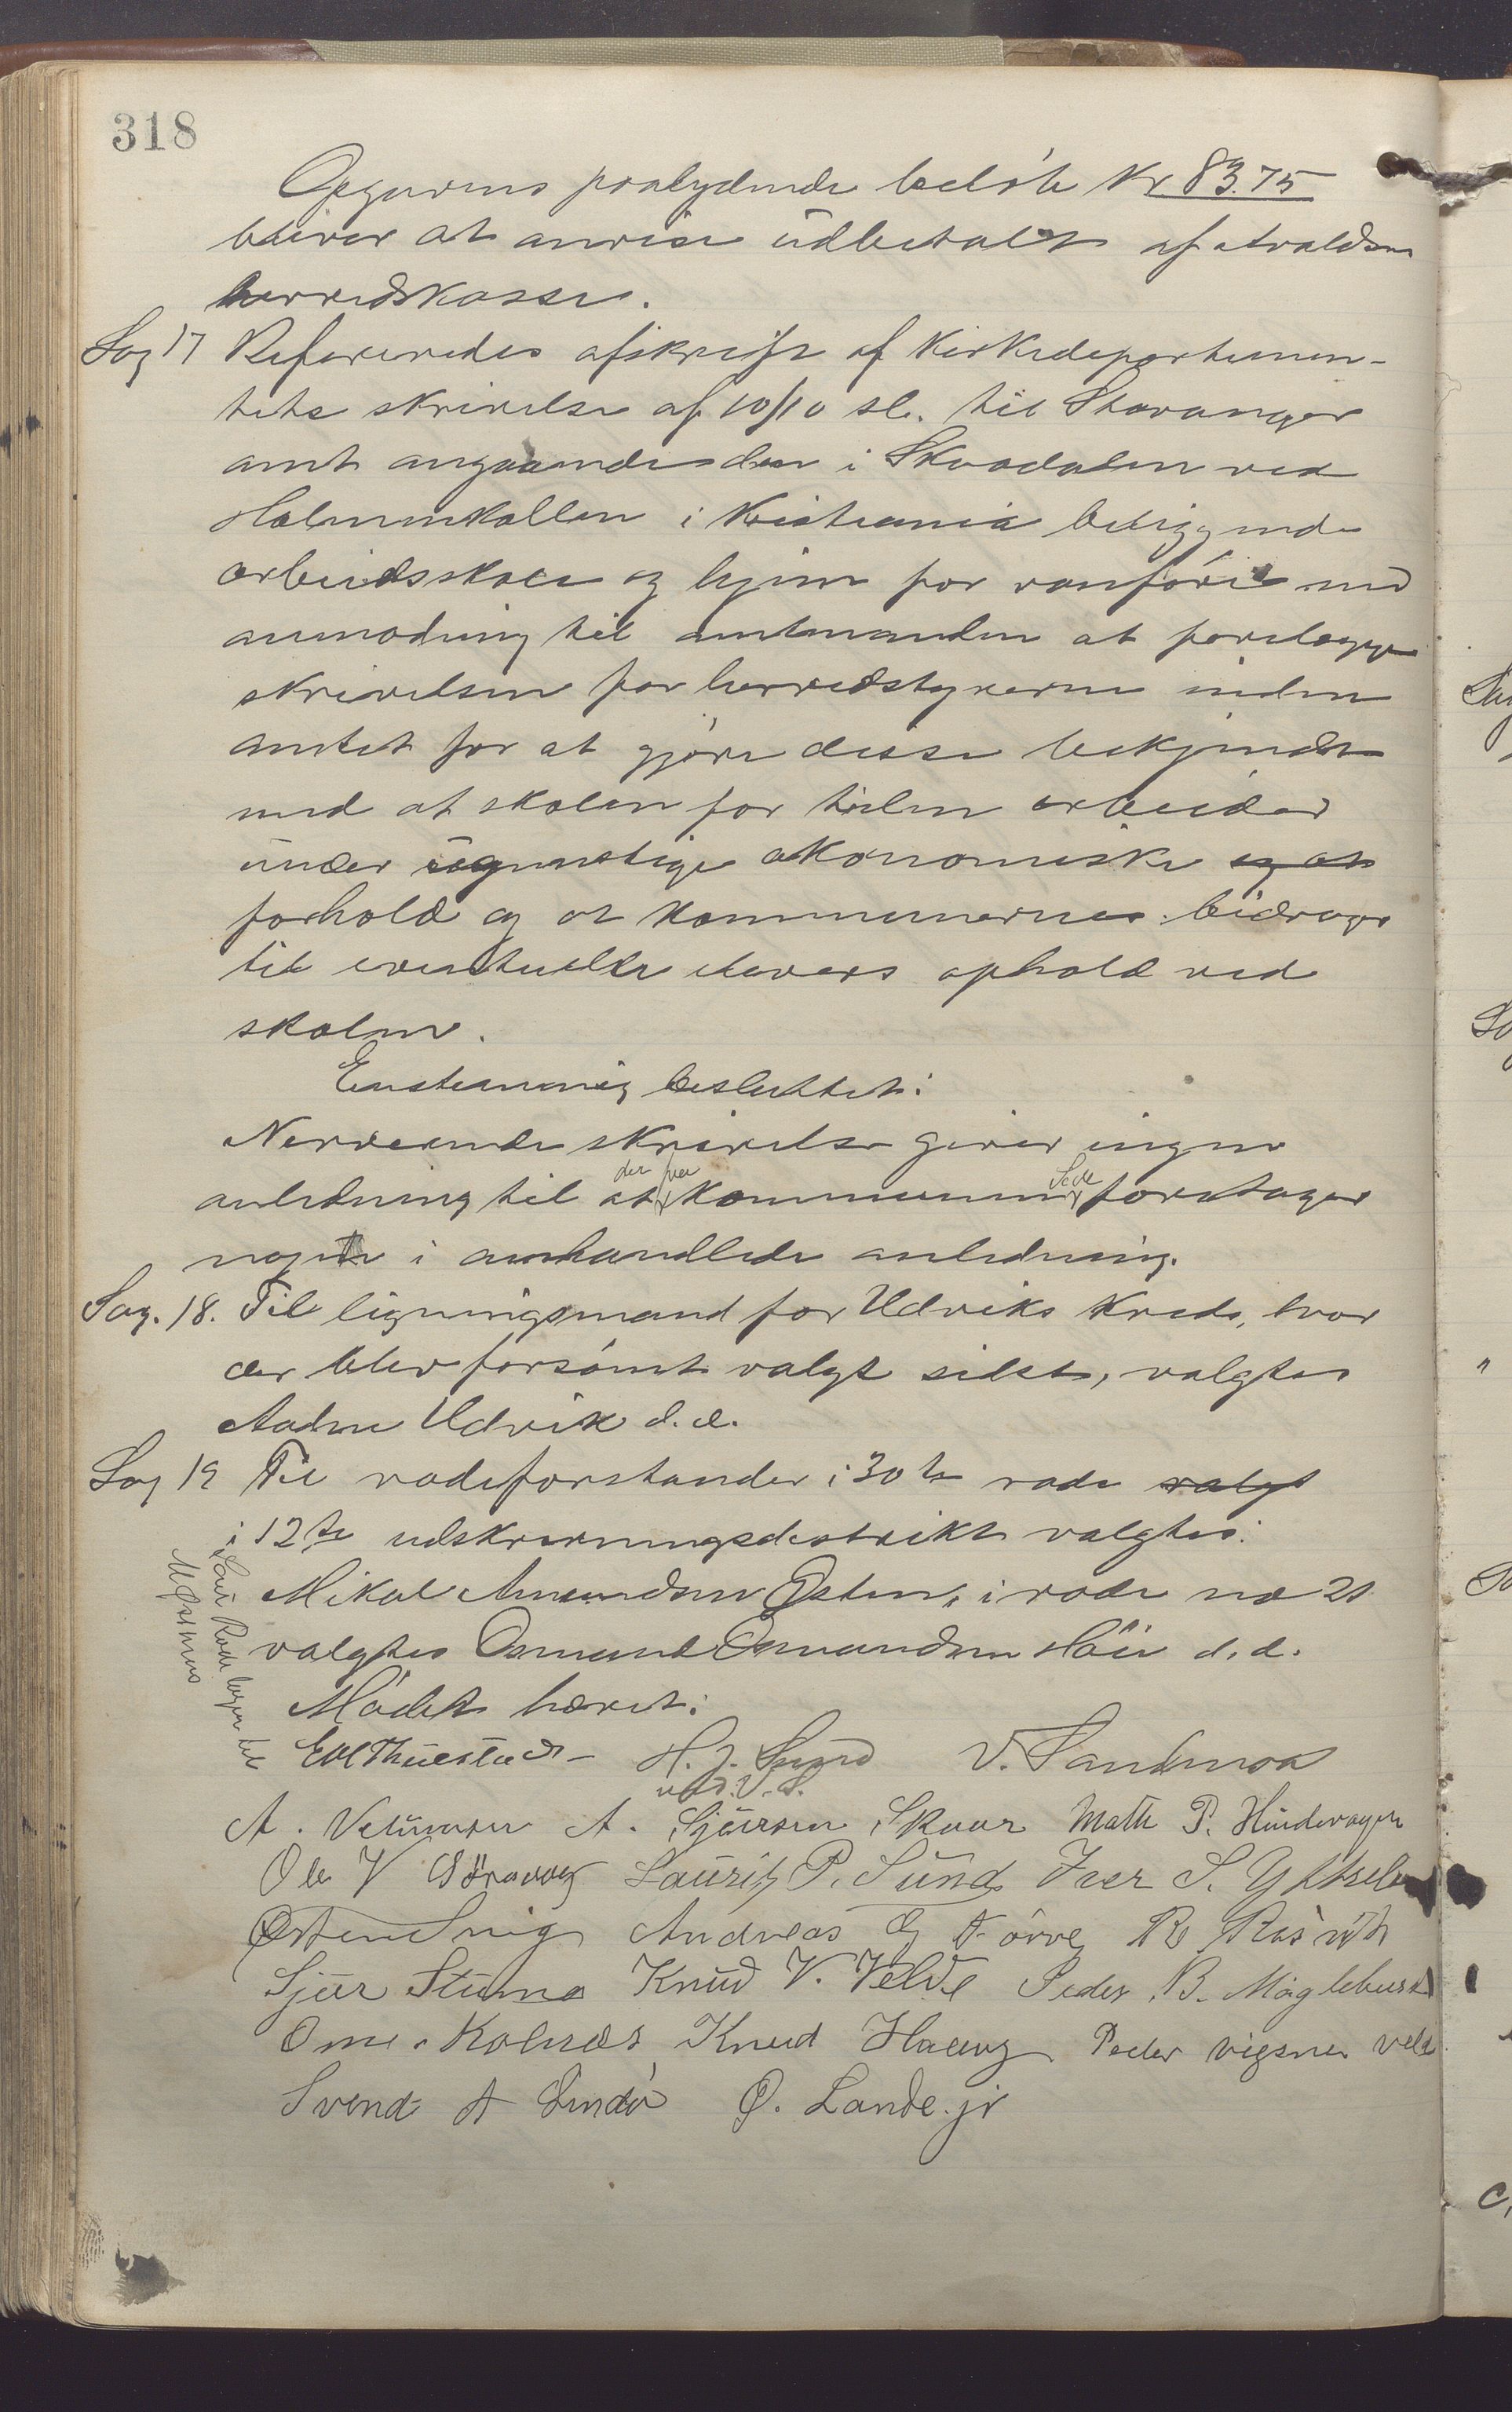 318
Opgavens paalydende beløb Kr 83.75
bliver at anvise udbetalt af Avaldsnes
herredskasse.
Sag 17 Refereredes afskrift af Kirkedepartemen-
tets skrivelse af 10/10 sl. til Stavanger
amt angaaende den i Skaadalen ved
Holmenkollen i Kristiania beliggende
arbeidsskole og hjem for vanføre med
anmodning til amtmanden at forelægge
skrivelsen for herredstyrerne inden
amtet for at gjøre disse bekjendt
med at skolen for tiden arbeider
under ugunstige økonomiske og at
forhold og at kommunernes bidrage
til eventuelle elevers ophold ved
skolen.
Enstemmig besluttet:
Nerværende skrivelse giver ingen
anledning til at der fra kommunens Side foretages
noget i omhandlede anledning.
Sag. 18. Til ligningsmand for Udviks Kreds, hvor
der blev forsømt valgt sidst, valgtes
Aadne Udvik d. e.
Sag 19 Til rodeforstander i 30te rode valgt
i 12te udskrivningsdistrikt valgtes:
Mikal Amundsen Østen, i rode no 21
valgtes Osmund Osmundsen Høie d. d.
Mødet hævet:
E Thuestad H. J. Sund V. Sandmoa
ved V. S.
A. A. Sjursen Skaar Math P. Hindevagen
Ole V Lauritz P. Sund Iver S. Ytreland
Østen Andreas R
Sjur Stumo Knud V. Velde Peder B. Møglebust
Kolnes Knud Haavig Peder Vigsnes
Svend A Ø. Lande jr